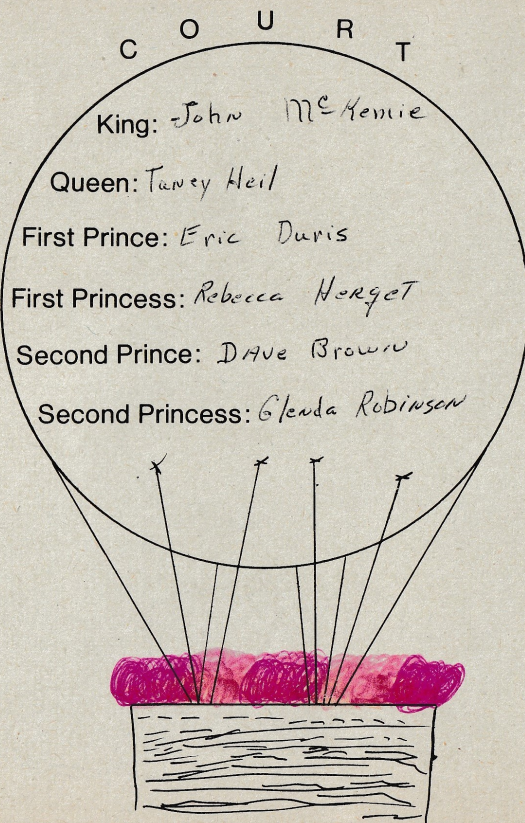 COURT
King: John McKemie
Queen: Taney Heil
First Prince: Eric Duris
First Princess: Rebecca Herget
Second Prince: Dave Brown
Second Princess: Glenda Robinson